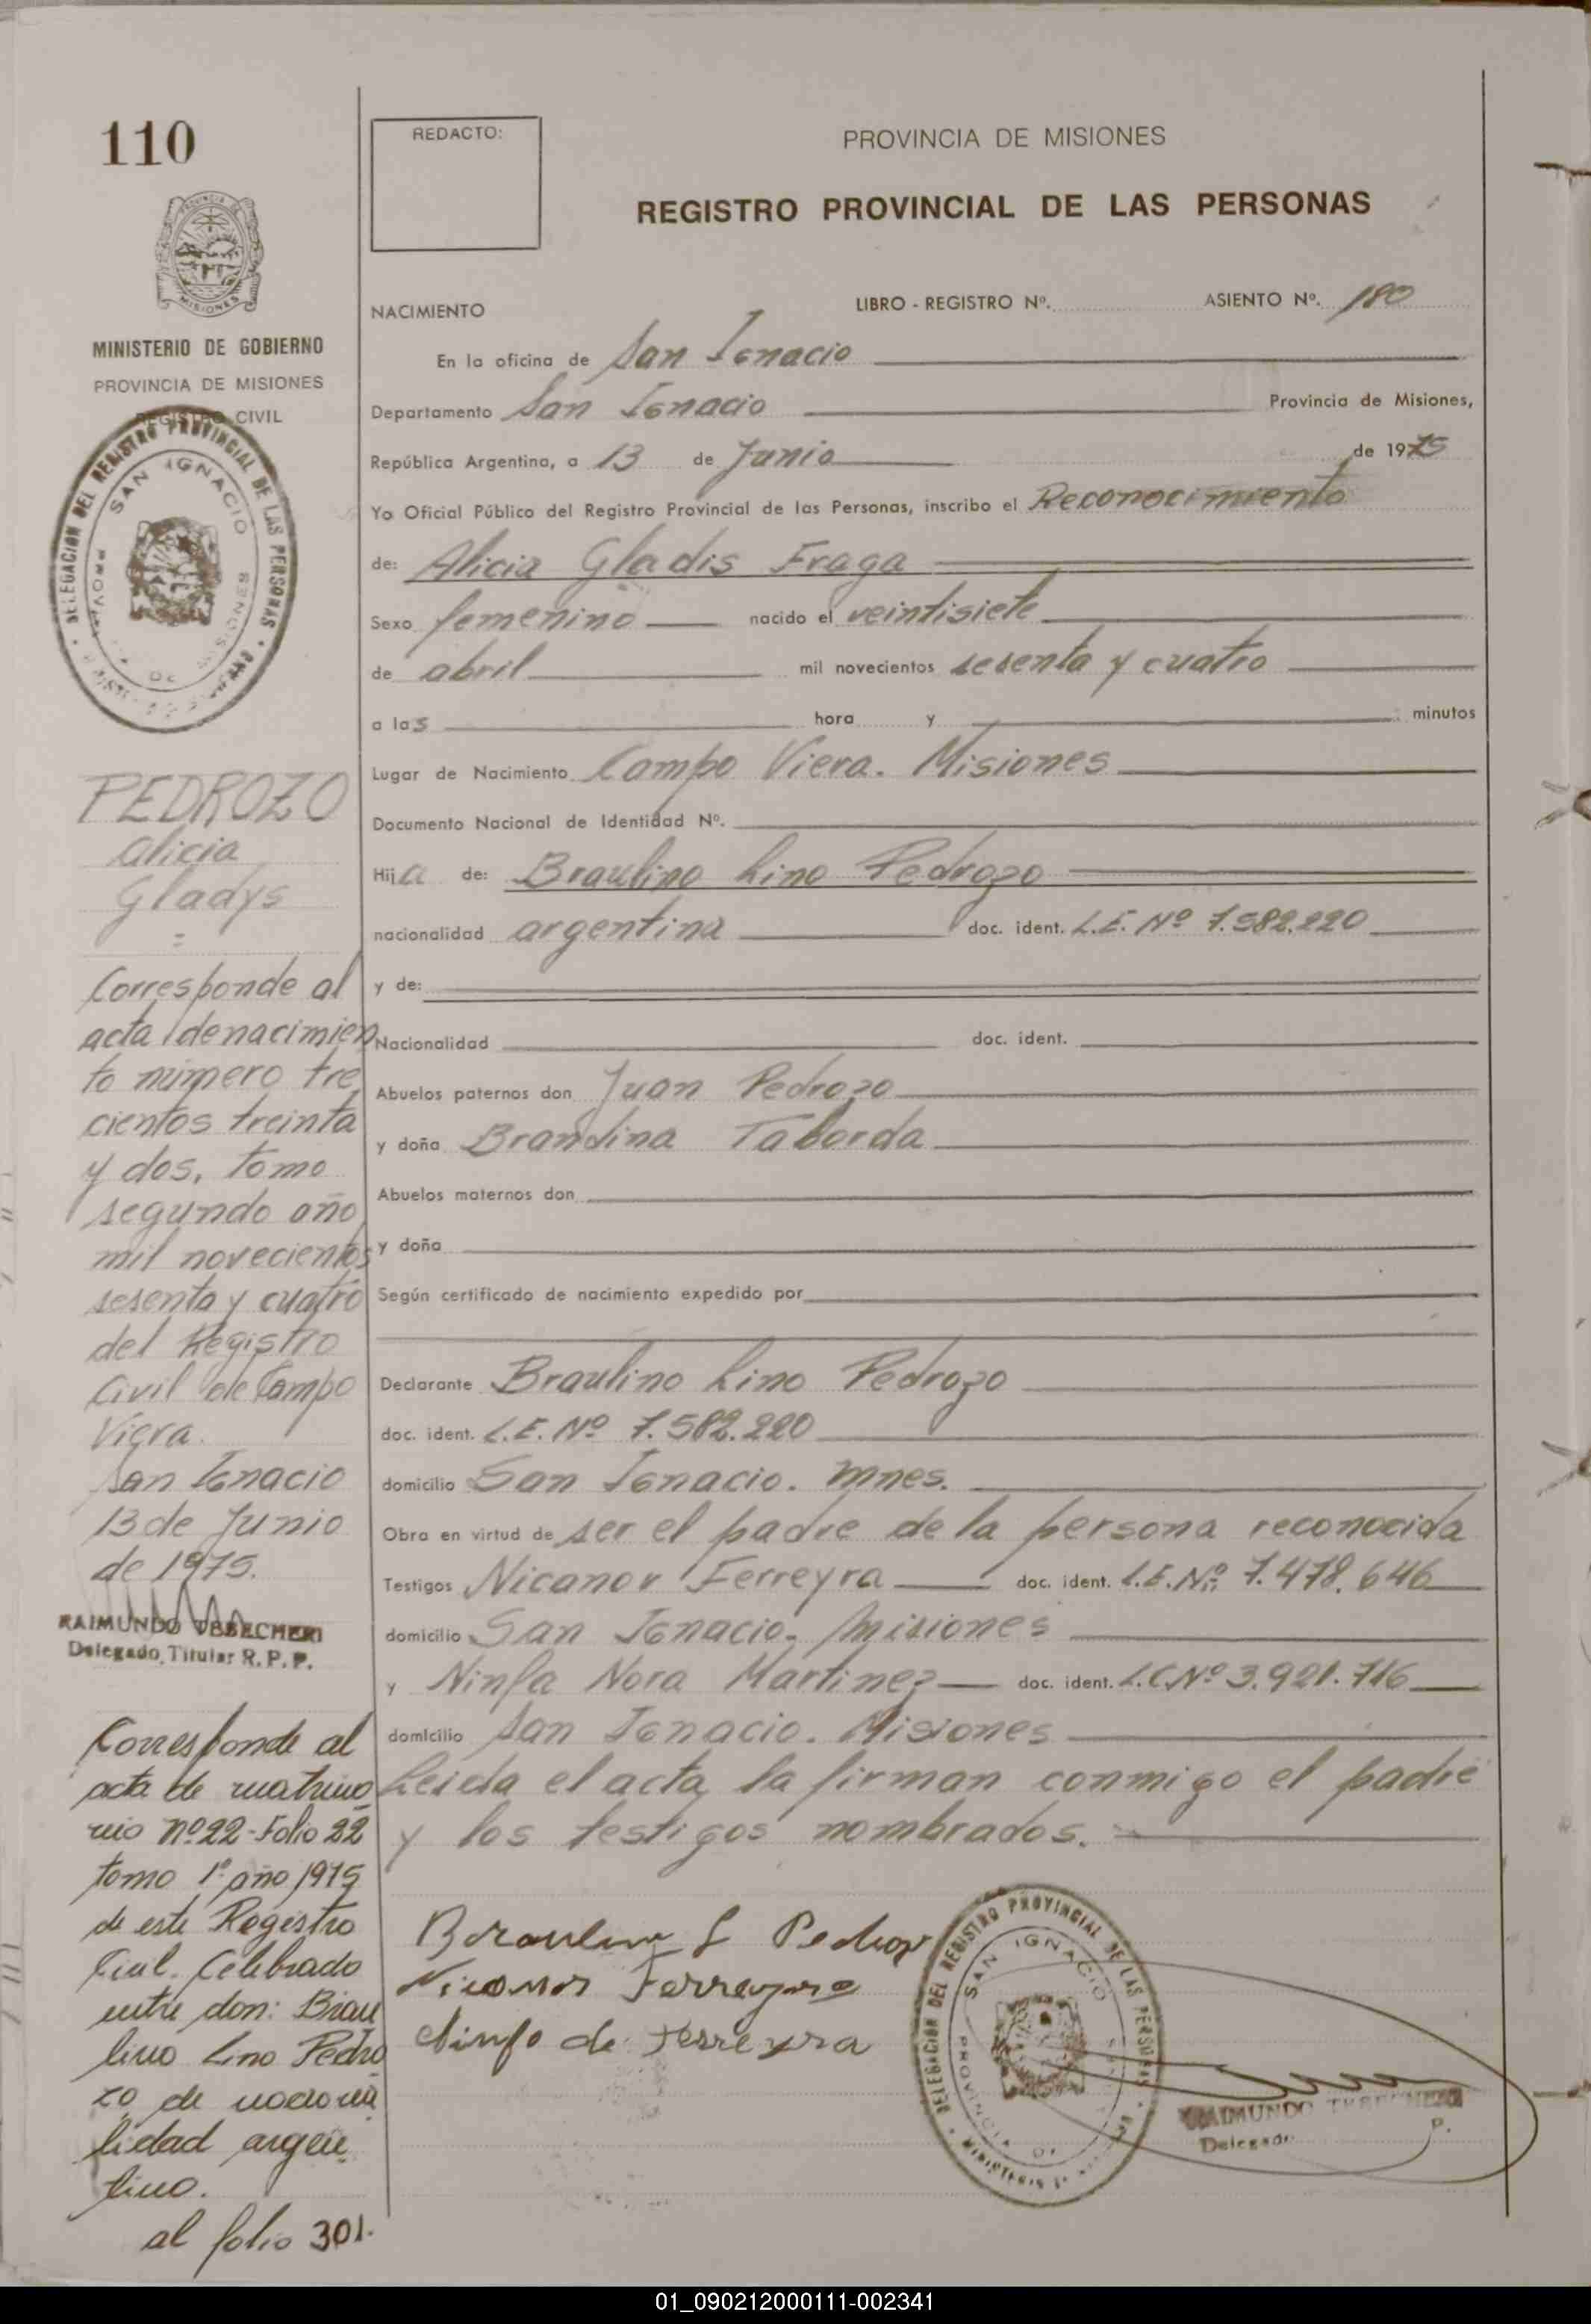 110
MINISTERIO DE GOBIERNO
PROVINCIA DE MISIONES
REGISTRO CIVIL
DELEGACION DEL REGISTRO PROVINCIAL DE LAS PERSONAS
SAN IGNACIO
PEDROZO
Alicia
Gladys
=
Corresponde al
acta de nacimien
to número tre
cientos treinta
y dos, tomo
segundo año
mil novecientos
sesenta y cuatro
del Registro
Civil de Campo
Viera.
San Ignacio
13 de Junio
de 1975.
RAIMUNDO TERECHERI
Delegado Titular R.P.P.
Corresponde al
acta de matrimo
nio Nº 22 - Folio 22
tomo 1º año 1975
de este Registro
Civil. Celebrado
entre don: Brau
lino Lino Pedro
zo de naciona
lidad argen
tino.
al folio 301.
REDACTO:
PROVINCIA DE MISIONES
REGISTRO PROVINCIAL DE LAS PERSONAS
NACIMIENTO LIBRO - REGISTRO Nº. ASIENTO Nº. 180
En la oficina de San Ignacio
Departamento San Ignacio Provincia de Misiones,
República Argentina, a 13 de Junio de 1975
Yo Oficial Público del Registro Provincial de las Personas, inscribo el Reconocimiento
de: Alicia Gladis Fraga
Sexo femenino nacido el veintisiete
de abril mil novecientos sesenta y cuatro
a las hora y minutos
Lugar de Nacimiento Campo Viera. Misiones
Documento Nacional de Identidad Nº.
Hija de: Braulino Lino Pedrozo
nacionalidad argentina doc. ident. L.E. Nº 7.582.220
y de:
Nacionalidad doc. ident.
Abuelos paternos don Juan Pedrozo
y doña Brandina Taborda
Abuelos maternos don
y doña
Según certificado de nacimiento expedido por
Declarante Braulino Lino Pedrozo
doc. ident. L.E. Nº 7.582.220
domicilio San Ignacio. Mnes.
Obra en virtud de ser el padre de la persona reconocida
Testigos Nicanor Ferreyra doc. ident. L.E. Nº 7.478.646
domicilio San Ignacio. Misiones
y Ninfa Nora Martinez doc. ident. L.C. Nº 3.921.716
domicilio San Ignacio. Misiones
Leida el acta, la firman conmigo el padre
y los testigos nombrados.
Braulino L Pedrozo
Nicanor Ferreyra
Ninfa de Ferreyra
DELEGACION DEL REGISTRO PROVINCIAL DE LAS PERSONAS
SAN IGNACIO
PROVINCIA DE
RAIMUNDO TERECHERI
Delegado P.
01_090212000111-002341